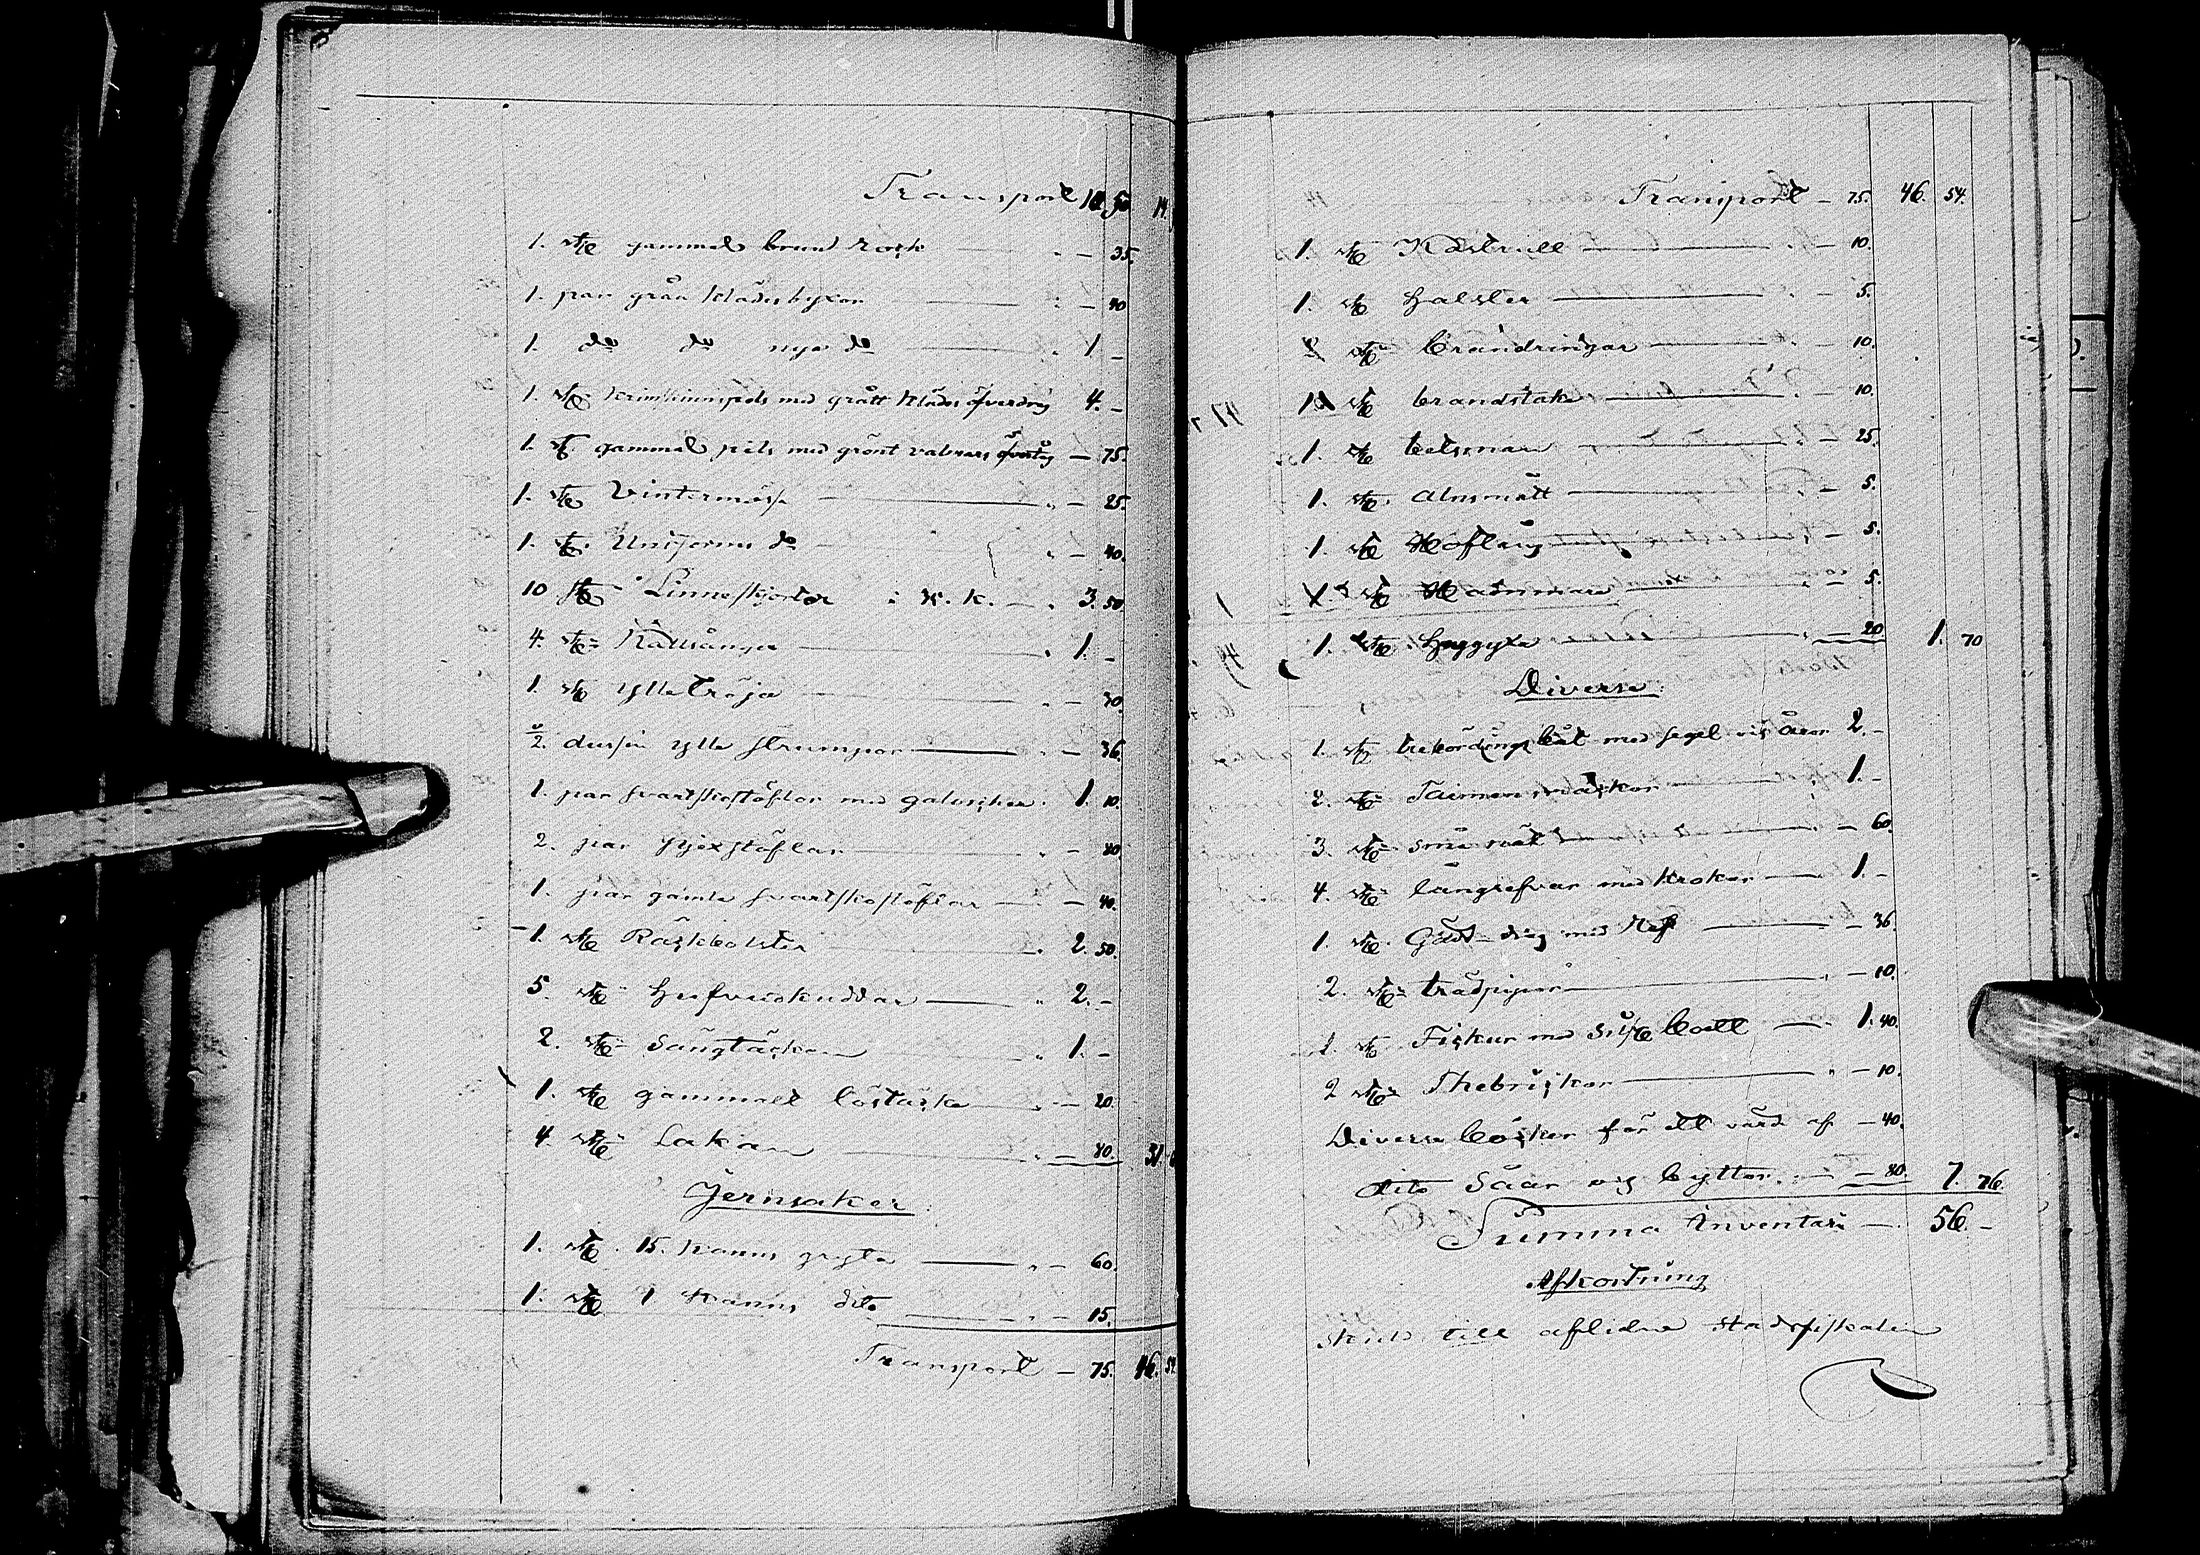 Transport 12 50 14
1. st. gammal brun rock — 35.
1. par gråa klädesbyxor — 40
1. do do nya do 1 —
1. st. krimskinnspels med grått klädes öfverdrag 4. —
1. st. gammal päls med grönt valmars öfverdrag — 75.
1. st. Vintermössa — 25.
1. st. Uniforms do — 40.
10 st. Linneskjortor 3. 50.
4. st. Kallsånger 1. —
1. st. ylletröja — 30.
1/2. dussin ylle strumpor — 36.
1. par svartskostöflar med galoscher 1. 10.
2. par pjexstöflar — 80.
1. par gamla svartskostöflar — 40.
1. st. Raskbolster 2. 50.
5. st. Hufvudkuddar 2. —
2. st. Sängtäcken 1. —
1. st. gammalt löstäcke — 20.
4. st. Lakan — 80. 31.
Jernsaker:
1. st. 15. kanns gryta — 60.
1. st. 1 kanns dito — 15.
Transport — 75. 46. 54.
Transport — 75. 46. 54.
1. st. Kastrull — 10.
1. st. Halster — 5.
st. brandringar — 10.
1 st. brandstake — 10.
1. st. betsman — 25.
1. st. alnsmått — 5.
1. st. Hoftång — 5.
1 st. Hammare — 5.
1. st. Huggyxa — 20 1. 70
Diverse:
1. st. trebördings båt med segel och åror 2. —
2. st. Taimen 1. —
3. st. små nät — 60.
4. st. långrefvar med krokar 1. —
1. st. Gäddrag med Ref — 36.
2. st. träpipor — 10.
1. st. Fiskur med silfve boett 1. 40.
2 st. Thebrickor — 10.
Diverse böcker för ett värd af — 40.
dito Såar och byttor — 80. 7. 76.
Summa inventarii 56. —
Afkortning
skuld till aflidne stadsfiskalen